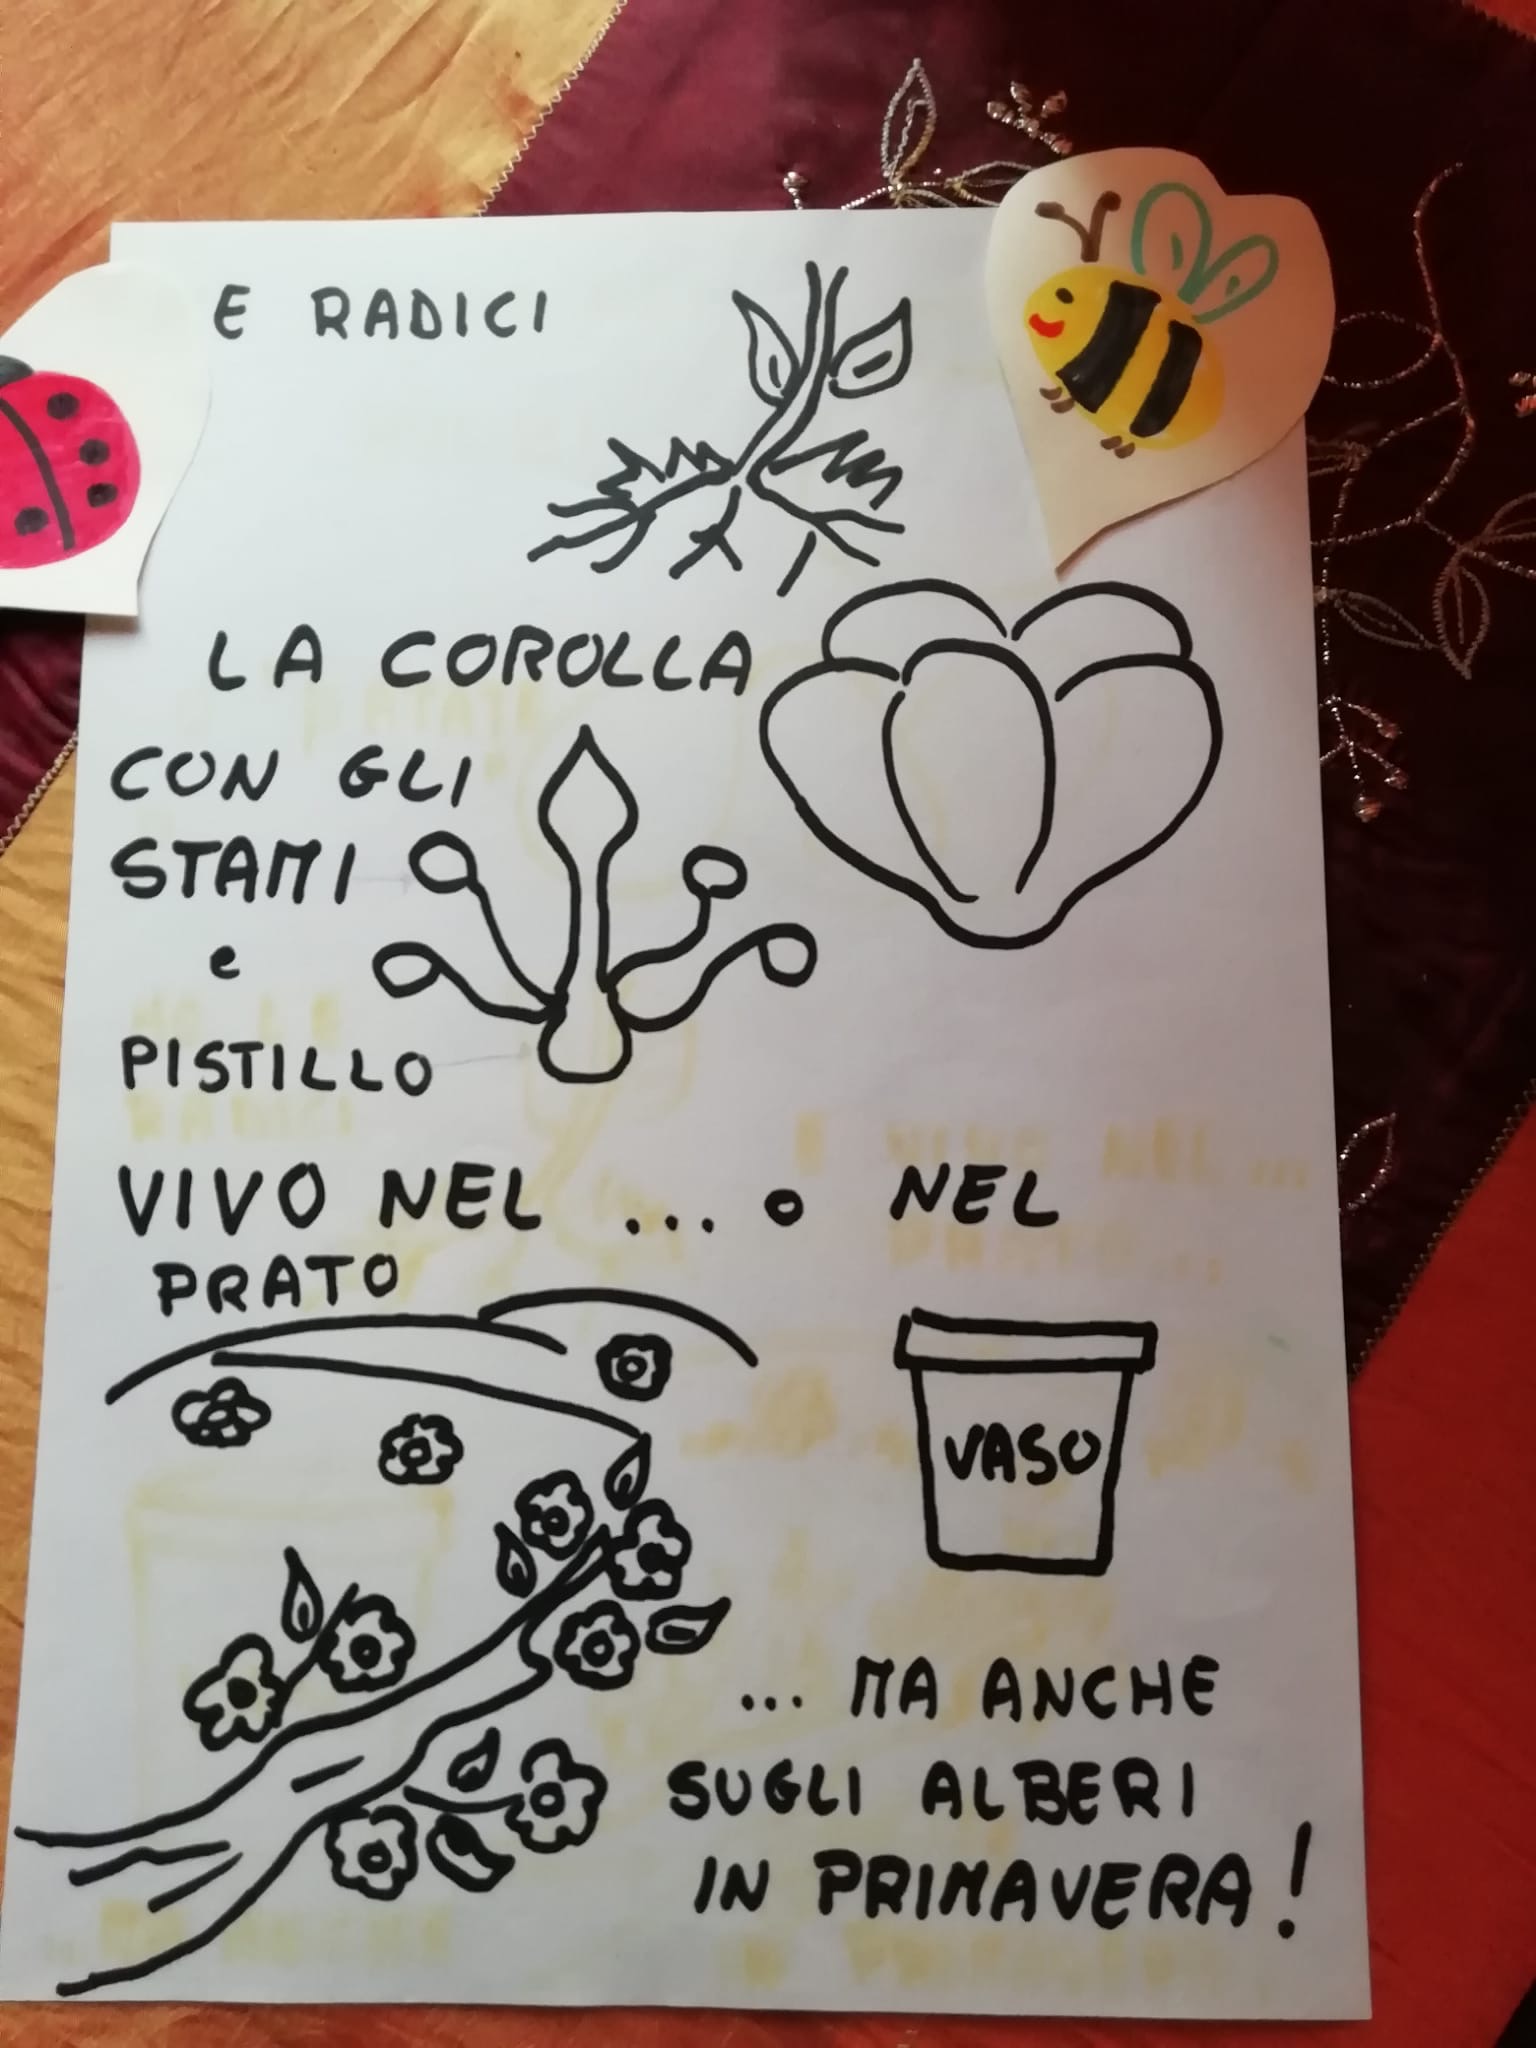 E RADICI
LA COROLLA
CON GLI
STAMI
e
PISTILLO
VIVO NEL ... o NEL
PRATO
VASO
... MA ANCHE
SUGLI ALBERI
IN PRIMAVERA!